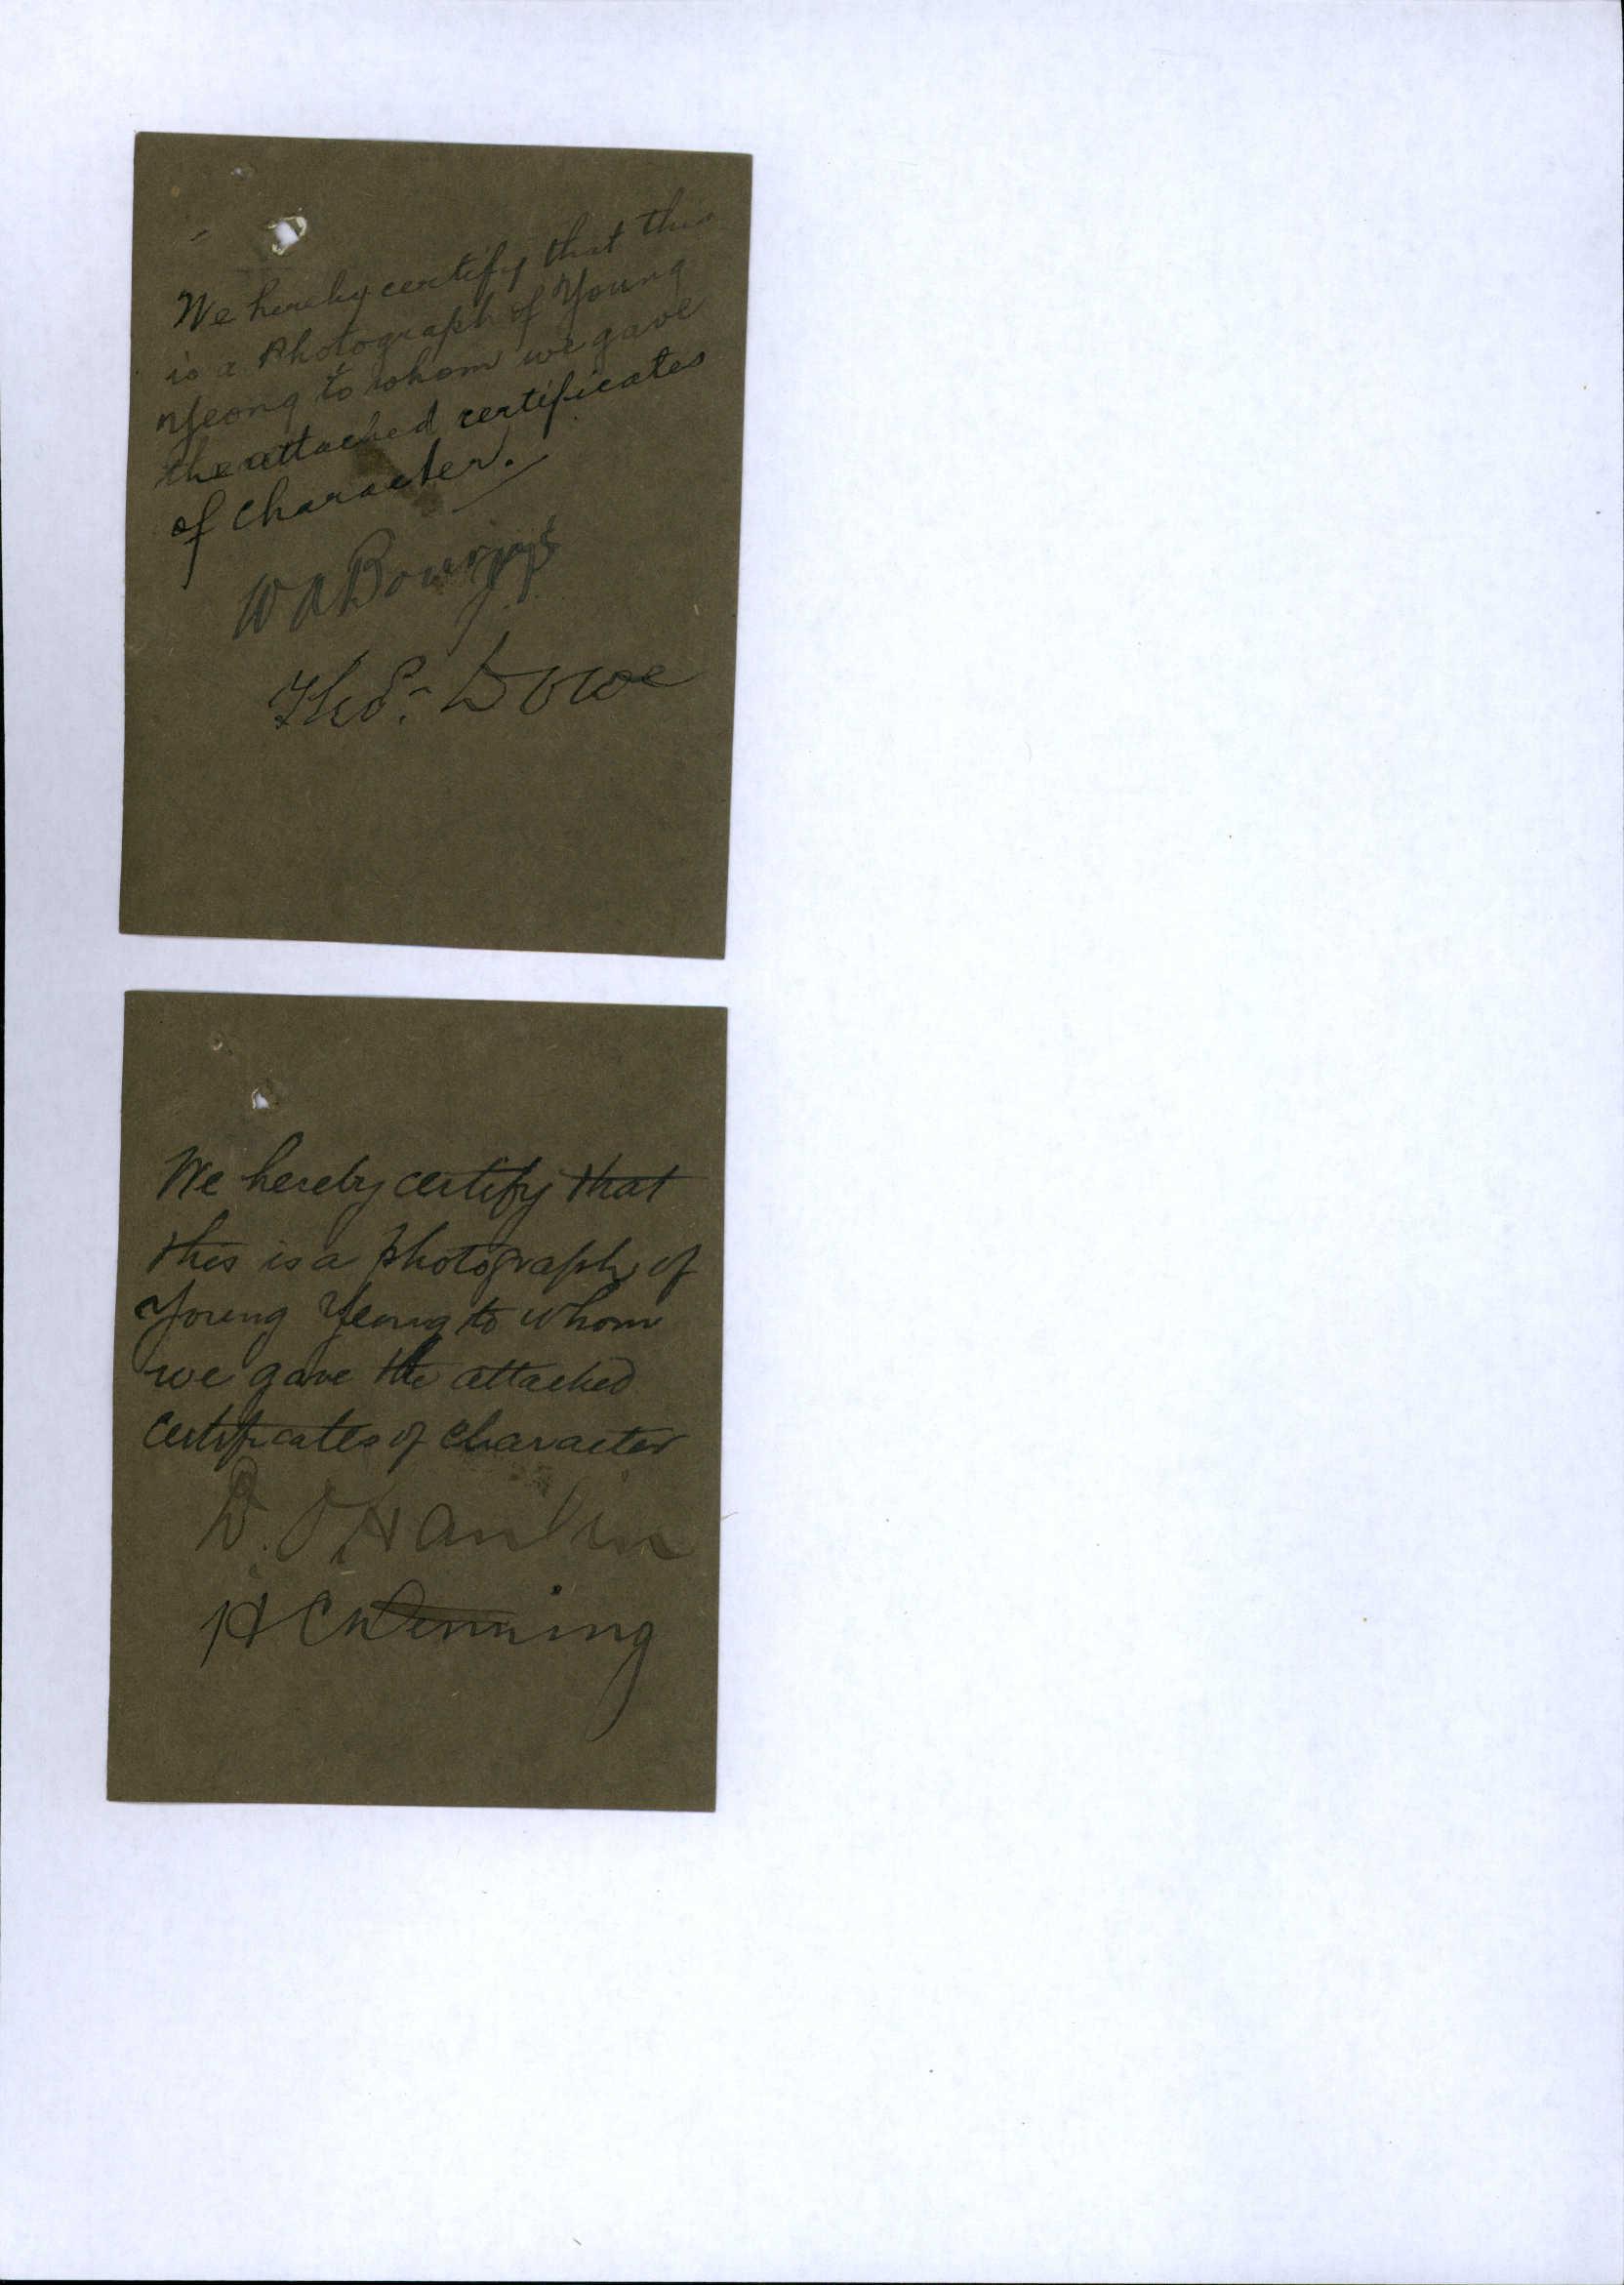 We hereby certify that this
is a Photograph of Young
Yeong to whom we gave
the attached certificates
of Character.
W A Bowring
Thos. Dowe
We hereby certify that
this is a photograph of
Young Yeong to whom
we gave the attached
certificates of character
D. O'Hanlin
H C Denning